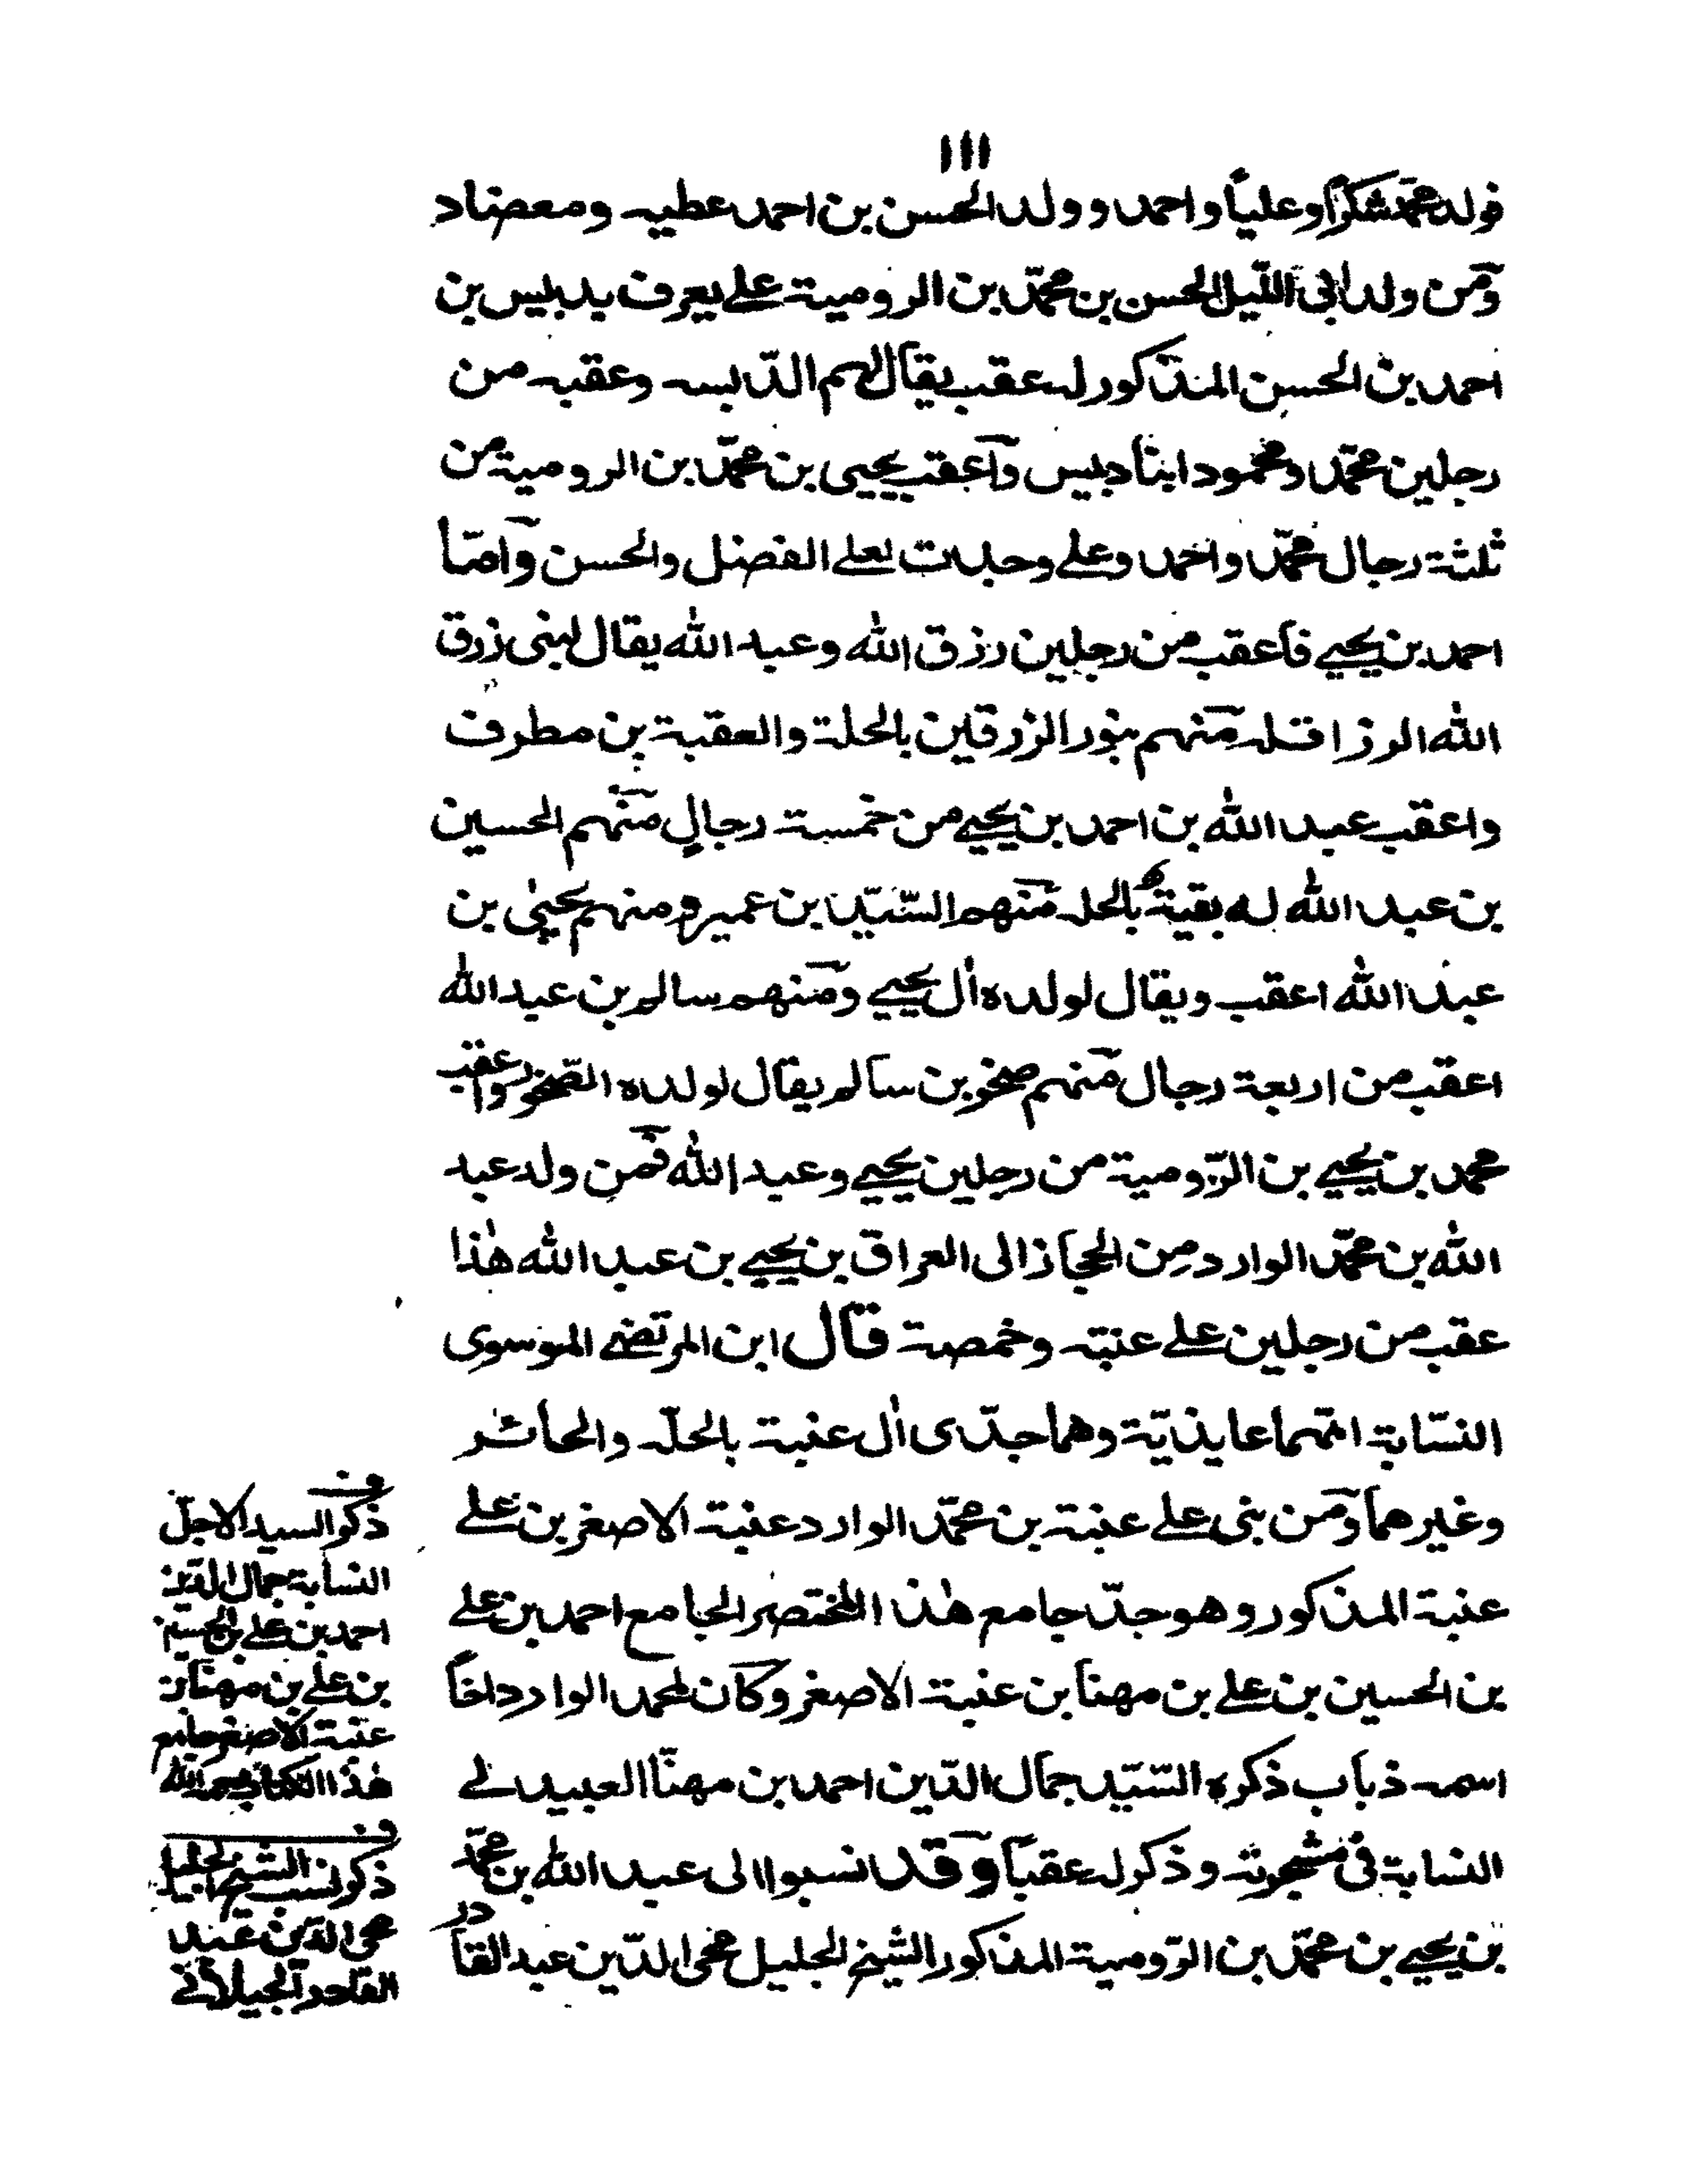 ١١١
فولد محمد شكرًا وعلياً واحمد وولد الحسن بن احمد عطيه ومعضاد
ومن ولد ابى الليل الحسن بن محمّد بن الرومية على يعرف بدبيس بن
احمد بن الحسن المذكور له عقب يقال لهم الدّبسه وعقبه من
رجلين محمّد ومحمود ابنا دبيس وآعقب يحيى بن محمّد بن الرومية من
ثلثة رجال محمّد واحمد وعلى وجدت لعلى الفضل والحسن وآمّا
احمد بن يحيى فأعقب من رجلين رزق الله وعبد الله يقال لبنى زرق
الله الرزاقله منهم بنو الزرقين بالحلة والعقبة بن مطرف
واعقب عبد الله بن احمد بن يحيى من خمسة رجالٍ منهم الحسين
بن عبد الله له بقية بالحله منهم السّيّد بن عميره ومنهم يحيٰى بن
عبد الله اعقب ويقال لولده اٰل يحيى ومنهم سالم بن عبد الله
اعقب من اربعة رجال منهم صخر بن سالم يقال لولده الصّخور واعقب
محمد بن يحيى بن الرّومية من رجلين يحيى وعبد الله فمن ولد عبد
الله بن محمّد الوارد مِن الحجاز الى العراق بن يحيى بن عبد الله هٰذا
عقب من رجلين على عنبته وخمصة قال ابن المرتضى الموسوى
النسّابة امّهما عايذيّة وهما جدّى اٰل عنبة بالحلّه والحائر
وغيرهما ومن بنى على عنبته بن محمّد الوارد عنبة الاصغر بن على
عنبة المذكور وهو جدّ جامع هٰذا المختصر الجامع احمد بن على
بن الحسين بن على بن مهنا بن عنبة الاصغر وكان لمحمد الوارد اخاً
اسمه ذباب ذكره السّيّد جمال الدّين احمد بن مهنّا العبيدلى
النسابة فى مشجرته وذكر له عقباً وقد نسبوا الى عبد الله بن محمّد
بن يحيى بن محمّد بن الرّومية المذكور الشيخ الجليل محى الدّين عبد القادر
ذكر السيد الاجلّ
النسابة جمال الدّين
احمد بن على بن الحسين
بن على بن مهنا بن
عنبة الاصغر جامع
هٰذا الكتاب رحمه الله
ذكر نسب الشيخ الجليل
محى الدّين عبد
القادر الجيلانى